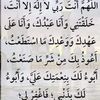 اللَّهُمَّ أَنْتَ رَبِّي لَا إِلَهَ إِلَّا أَنْتَ،
خَلَقْتَنِي وَأَنَا عَبْدُكَ، وَأَنَا عَلَى
عَهْدِكَ وَوَعْدِكَ مَا اسْتَطَعْتُ،
أَعُوذُ بِكَ مِنْ شَرِّ مَا صَنَعْتُ،
أَبُوءُ لَكَ بِنِعْمَتِكَ عَلَيَّ، وَأَبُوءُ
لَكَ بِذَنْبِي؛ فَاغْفِرْ لِي؛